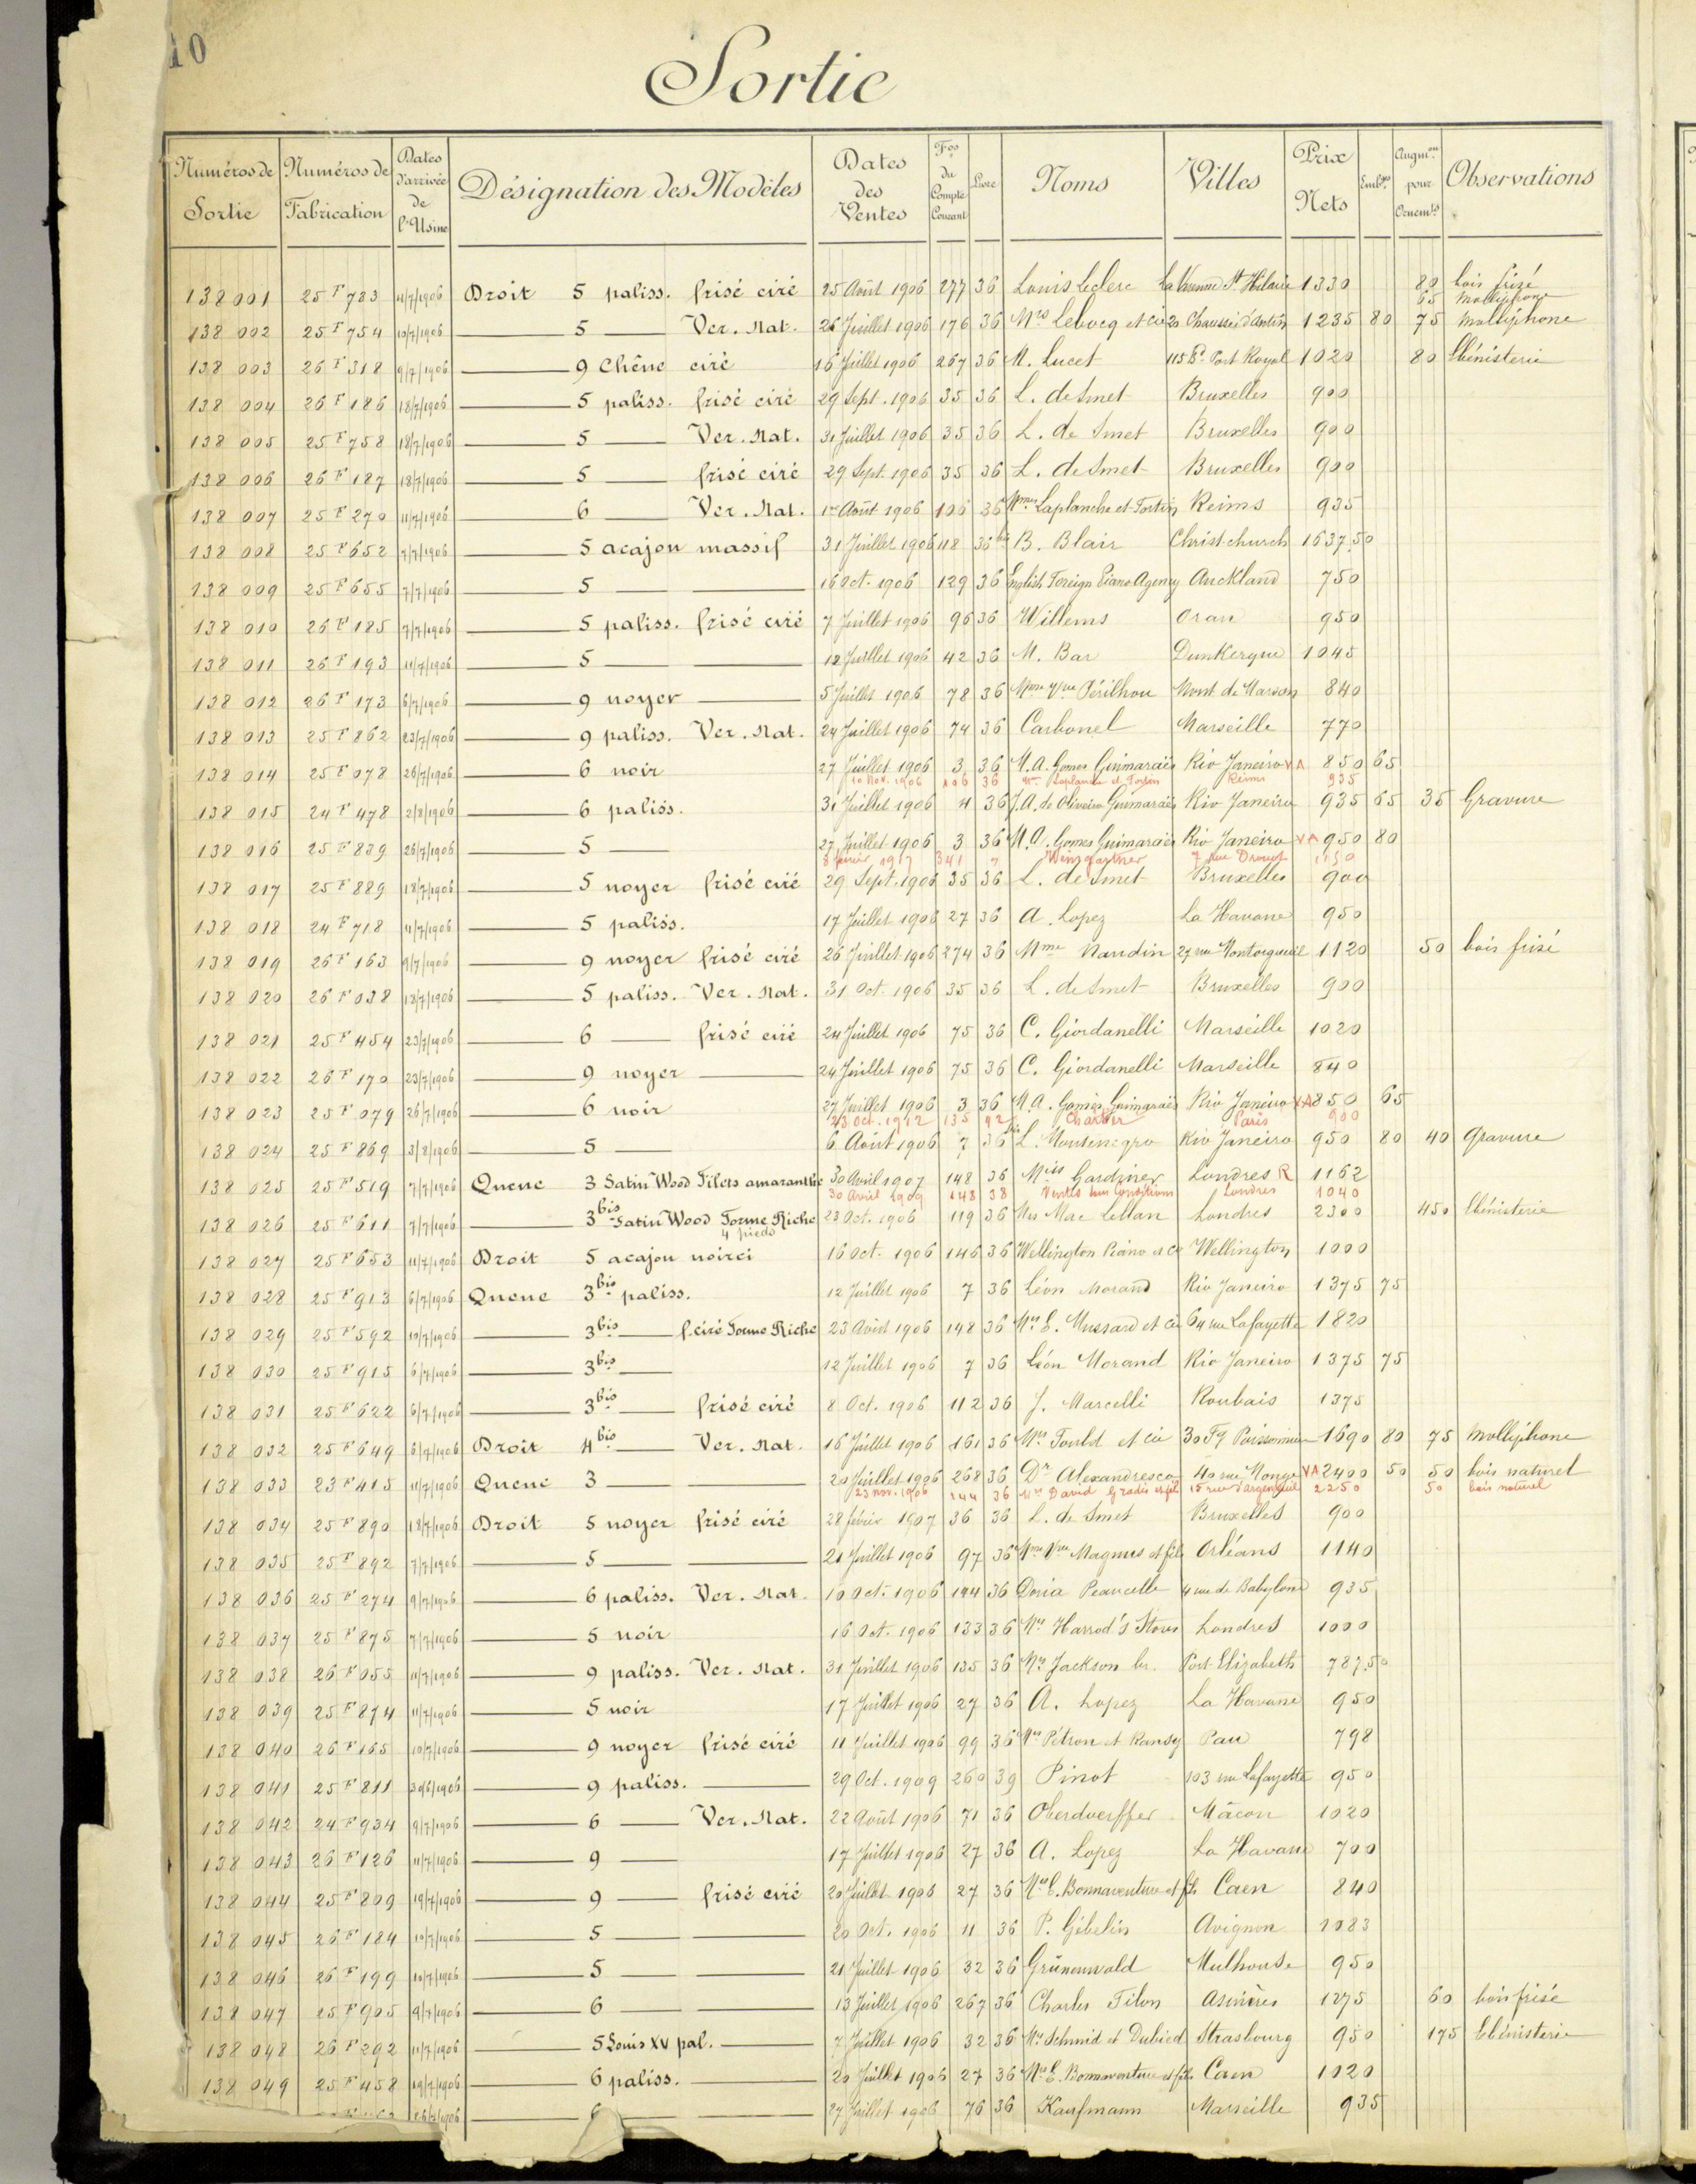 10
Sortie
Numéros de Sortie Numéros de Fabrication Dates d'arrivée de l'Usine Désignation des Modèles Dates des Ventes Fos du Compte Courant Livre Noms Villes Prix Nets Emb. Augm.on pour Ornem.ts Observations
138 001 25 F 783 11/7/1906 Droit 5 paliss. frisé ciré 25 Août 1906 277 36 Louis Leclerc La Varenne St Hilaire 1330 80 bois frisé
65 molliphone
138 002 25 F 754 10/7/1906 5 — Ver. Nat. 26 Juillet 1906 176 36 Mrs Lebocq et Cie 20 Chaussée d'Antin 1235 80 75 molliphone
138 003 26 F 318 9/7/1906 9 Chêne ciré 16 Juillet 1906 267 36 M. Lucet 115 Bd Port Royal 1020 80 Ebénisterie
138 004 26 F 186 18/7/1906 5 paliss. frisé ciré 29 Sept. 1906 35 36 L. de Smet Bruxelles 900
138 005 25 F 758 18/7/1906 5 — Ver. Nat. 31 Juillet 1906 35 36 L. de Smet Bruxelles 900
138 006 26 F 187 18/7/1906 5 — frisé ciré 29 Sept. 1906 35 36 L. de Smet Bruxelles 900
138 007 25 F 270 11/7/1906 6 — Ver. Nat. 1er Août 1906 106 36 Mmes Laplanche et Fortin Reims 935
138 008 25 F 652 7/7/1906 5 acajou massif 31 Juillet 1906 118 36 bis B. Blair Christchurch 1637.50
138 009 25 F 655 7/7/1906 5 — — 16 Oct. 1906 129 36 English Foreign Piano Agency Auckland 750
138 010 26 F 185 7/7/1906 5 paliss. frisé ciré 7 Juillet 1906 96 36 Willems Oran 950
138 011 26 F 193 11/7/1906 5 — — 12 Juillet 1906 42 36 M. Bar Dunkerque 1045
138 012 26 F 173 6/7/1906 9 noyer — 5 Juillet 1906 78 36 Mme Vve Périlhou Mont de Marsan 840
138 013 25 F 862 23/7/1906 9 paliss. Ver. Nat. 24 Juillet 1906 74 36 Carbonel Marseille 770
138 014 25 F 078 26/7/1906 6 noir 27 Juillet 1906 3 36 M.A. Gomes Guimaraës Rio Janeiro VA 850 65
10 Nov. 1906 106 36 Mmes Laplanche et Fortin Reims 935
138 015 24 F 478 2/8/1906 6 paliss. 31 Juillet 1906 4 36 J.A. de Oliveira Guimaraës Rio Janeiro 935 65 35 Gravure
138 016 25 F 839 26/7/1906 5 — 27 Juillet 1906 3 36 M.A. Gomes Guimaraës Rio Janeiro VA 950 80
8 février 1917 341 Weingartner 7 rue Drouot 1150
138 017 25 F 889 18/7/1906 5 noyer frisé ciré 29 Sept. 1906 35 36 L. de Smet Bruxelles 900
138 018 24 F 718 11/7/1906 5 paliss. 17 Juillet 1906 27 36 A. Lopez La Havane 950
138 019 26 F 163 9/7/1906 9 noyer frisé ciré 26 Juillet 1906 274 36 Mme Naudin 27 rue Montorgueil 1120 50 bois frisé
138 020 26 F 038 18/7/1906 5 paliss. Ver. Nat. 31 Oct. 1906 35 36 L. de Smet Bruxelles 900
138 021 25 F 454 23/7/1906 6 — frisé ciré 24 Juillet 1906 75 36 C. Giordanelli Marseille 1020
138 022 26 F 170 23/7/1906 9 noyer — 24 Juillet 1906 75 36 C. Giordanelli Marseille 840
138 023 25 F 079 26/7/1906 6 noir 27 Juillet 1906 3 36 M.A. Gomes Guimaraës Rio Janeiro VA 850 65
23 Oct. 1912 135 42 Chartier Paris 900
138 024 25 F 869 3/8/1906 5 — 6 Août 1906 7 36 bis L. Monsenigro Rio Janeiro 950 80 40 Gravure
138 025 25 F 519 7/7/1906 Queue 3 Satin Wood Filets amaranthe 30 Avril 1907 148 36 Miss Gardiner Londres R 1162
30 Avril 1909 148 38 Ventes sous Conditions Londres 1040
138 026 25 F 611 7/7/1906 3 bis Satin Wood Forme Riche 4 pieds 23 Oct. 1906 119 36 Mrs Mac Lellan Londres 2300 450 Ebénisterie
138 027 25 F 653 11/7/1906 Droit 5 acajou noirci 16 Oct. 1906 146 36 Wellington Piano et Co Wellington 1000
138 028 25 F 913 6/7/1906 Queue 3 bis paliss. 12 Juillet 1906 7 36 Léon Morand Rio Janeiro 1375 75
138 029 25 F 592 10/7/1906 3 bis — f. ciré Forme Riche 23 Août 1906 148 36 Mrs E. Mussard et Cie 64 rue Lafayette 1820
138 030 25 F 915 6/7/1906 3 bis — 12 Juillet 1906 7 36 Léon Morand Rio Janeiro 1375 75
138 031 25 F 622 6/7/1906 3 bis — frisé ciré 8 Oct. 1906 112 36 J. Marcelli Roubaix 1375
138 032 25 F 649 6/7/1906 Droit 4 bis — Ver. Nat. 16 Juillet 1906 161 36 Mrs Tould et Cie 30 Fg Poissonnière 1690 80 75 Molliphone
138 033 23 F 415 11/7/1906 Queue 3 — — 20 Juillet 1906 268 36 Dr Alexandresco 40 rue Monge VA 2400 50 50 bois naturel
23 nov. 1906 144 36 Mrs David Gradis et fils 15 rue d'argenteuil 2250 50 bois naturel
138 034 25 F 890 18/7/1906 Droit 5 noyer frisé ciré 28 février 1907 36 36 L. de Smet Bruxelles 900
138 035 25 F 892 7/7/1906 5 — — 21 Juillet 1906 97 36 Mme Vve Magnus et fils Orléans 1140
138 036 25 F 274 9/7/1906 6 paliss. Ver. Nat. 10 Oct. 1906 144 36 Doria Peaucelle 4 rue de Babylone 935
138 037 25 F 875 7/7/1906 5 noir 16 Oct. 1906 133 36 Mrs Harrod's Stores Londres 1000
138 038 26 F 055 11/7/1906 9 paliss. Ver. Nat. 31 Juillet 1906 135 36 Mrs Jackson br. Port-Elizabeth 787.50
138 039 25 F 874 11/7/1906 5 noir 17 Juillet 1906 27 36 A. Lopez La Havane 950
138 040 26 F 165 10/7/1906 9 noyer frisé ciré 11 Juillet 1906 99 36 Mrs Pétron et Ransy Pau 798
138 041 25 F 811 30/6/1906 9 paliss. — 29 Oct. 1909 260 39 Pinot 103 rue Lafayette 950
138 042 24 F 934 9/7/1906 6 — Ver. Nat. 22 Août 1906 71 36 Oberdoerffer Mâcon 1020
138 043 26 F 126 11/7/1906 9 — 17 Juillet 1906 27 36 A. Lopez La Havane 700
138 044 25 F 809 19/7/1906 9 — frisé ciré 20 Juillet 1906 27 36 Mrs E. Bonnaventure et fils Caen 840
138 045 26 F 184 10/7/1906 5 — — 20 Oct. 1906 11 36 P. Gébelin Avignon 1083
138 046 26 F 199 10/7/1906 5 — — 21 Juillet 1906 32 36 Grünenwald Mulhouse 950
138 047 25 F 905 9/7/1906 6 — — 13 Juillet 1906 267 36 Charles Tilon Asnières 1275 60 bois frisé
138 048 26 F 292 11/7/1906 5 Louis XV pal. — 7 Juillet 1906 32 36 Mrs Schmid et Dubied Strasbourg 950 175 Ebénisterie
138 049 25 F 458 19/7/1906 6 paliss. — 20 Juillet 1906 27 36 Mrs E. Bonnaventure et fils Caen 1020
26/7/1906 6 — — 27 Juillet 1906 76 36 Kaufmann Marseille 935